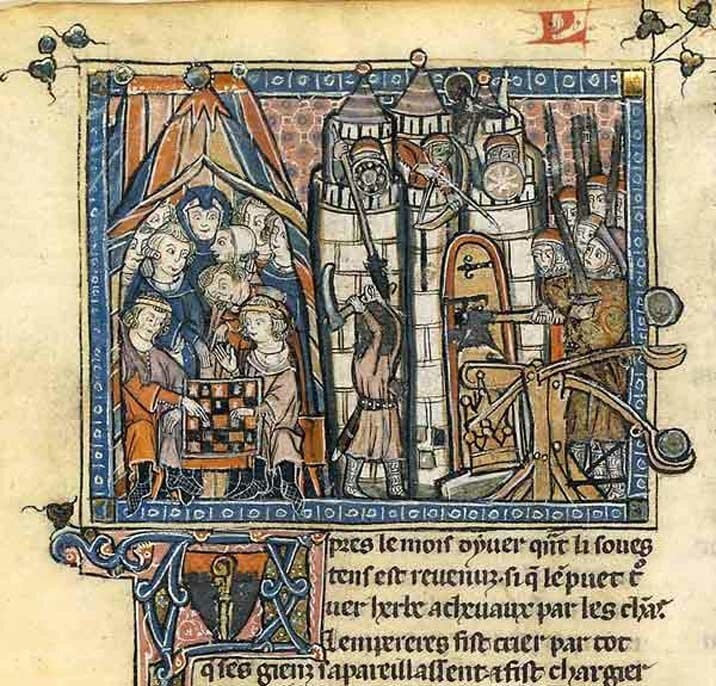 Apres le mois dyuer qñt li soues
tens est reuenuz. si q̃ lẽ puet tͦ
uer herbe acheuaux par les chãs.
Lempereres fist crier par tot
q ses gienz sapareillassent ⁊ fist chargier